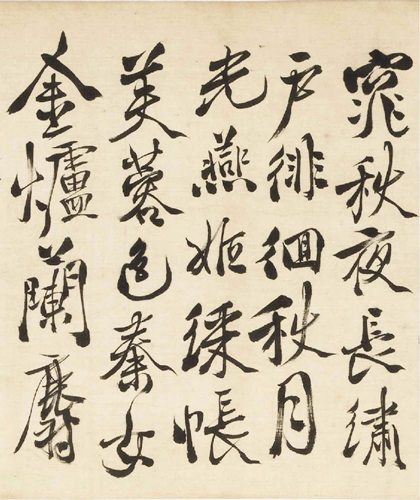 窕秋夜長繡
戶徘徊秋月
光燕姬綵帳
芙蓉色秦女
金爐蘭麝